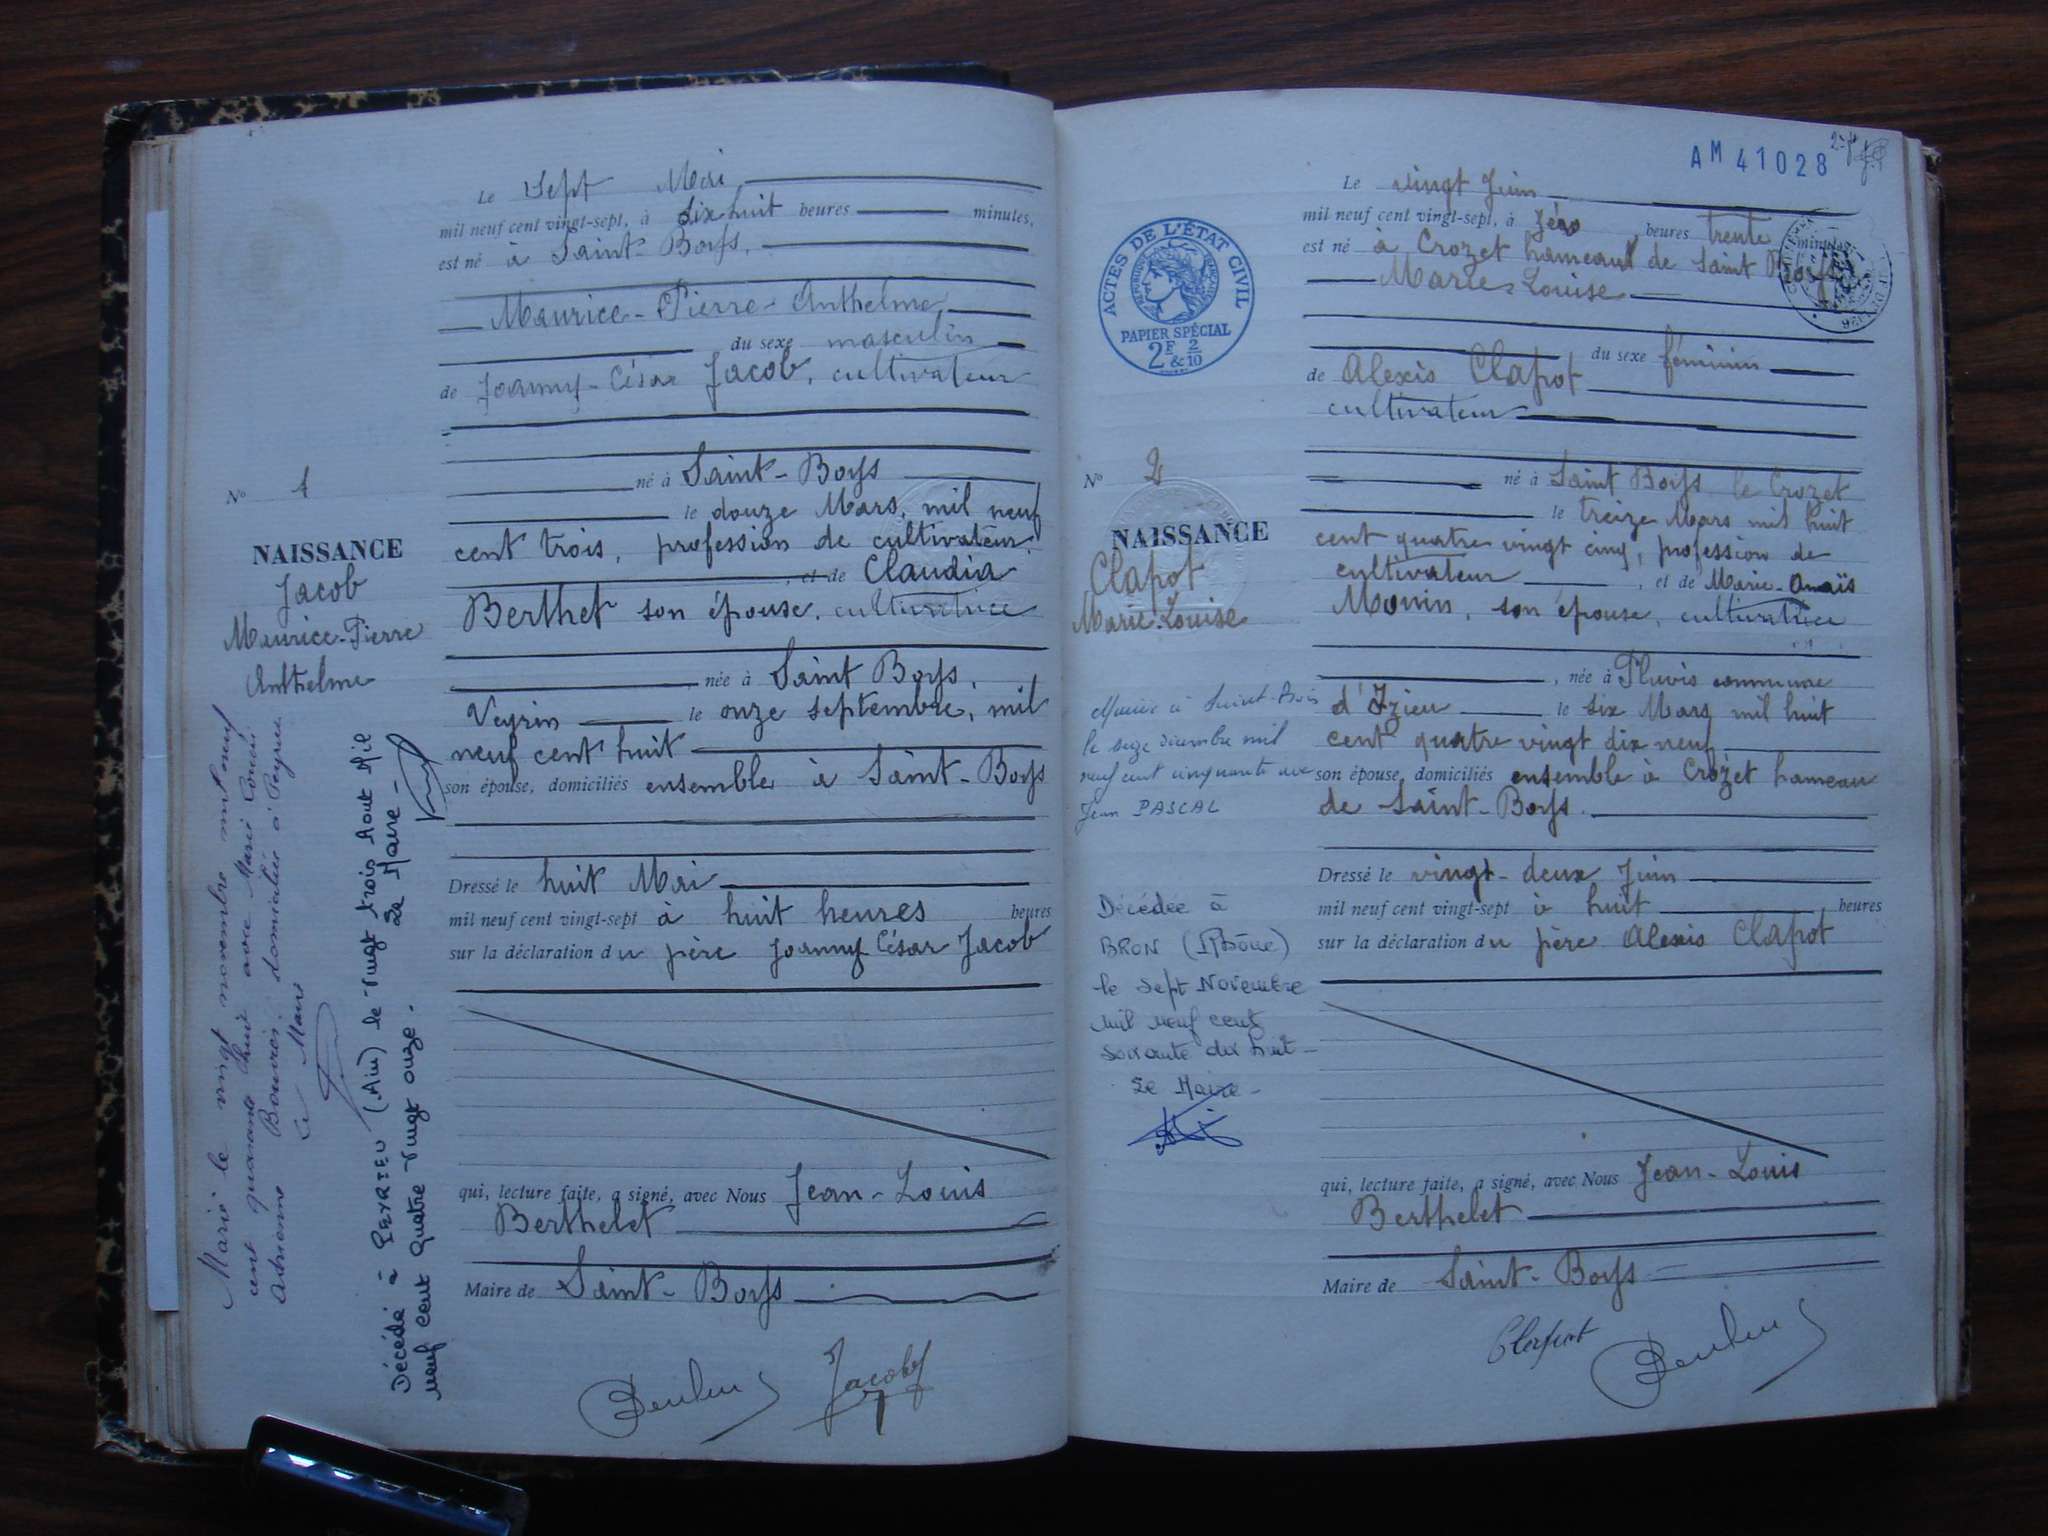 Le Sept Mai
mil neuf cent vingt-sept, à dix huit heures minutes,
est né à Saint-Boys.
Maurice-Pierre-Anthelme
du sexe masculin
de Joanny-César Jacob, cultivateur
né à Saint-Boys
le douze Mars, mil neuf
cent trois, profession de cultivateur
, et de Claudia
Berthet son épouse, cultivatrice
, née à Saint Boys,
Veyrin le onze septembre, mil
neuf cent huit
son épouse, domiciliés ensemble à Saint-Boys
Dressé le huit Mai
mil neuf cent vingt-sept à huit heures heures
sur la déclaration du père Joanny César Jacob
qui, lecture faite, a signé, avec Nous Jean-Louis
Berthelet
Maire de Saint-Boys
Jacob
N° 1
NAISSANCE
Jacob
Maurice-Pierre
Anthelme
Marié le vingt novembre mil neuf
cent quarante huit avec Marie Louise
domiciliés à Peyrieu
Le Maire
Décédé à PEYRIEU (Ain) le vingt trois Aout Mil
neuf cent quatre vingt onze.
Le Maire -
AM 41028
ACTES DE L'ÉTAT CIVIL
RÉPUBLIQUE FRANÇAISE
PAPIER SPÉCIAL
2F & 2/10
Le vingt Juin
mil neuf cent vingt-sept, à zéro heures trente minutes,
est né à Crozet hameau de Saint Boys
Marie-Louise
du sexe féminin
de Alexis Clapot
cultivateur
né à Saint Boys le Crozet
le treize Mars mil huit
cent quatre vingt cinq, profession de
cultivateur , et de Marie-Anaïs
Monin, son épouse, cultivatrice
, née à Pluvis commune
d'Izieu le six Mars mil huit
cent quatre vingt dix neuf
son épouse, domiciliés ensemble à Crozet hameau
de Saint-Boys.
Dressé le vingt-deux Juin
mil neuf cent vingt-sept à huit heures
sur la déclaration du père Alexis Clapot
qui, lecture faite, a signé, avec Nous Jean-Louis
Berthelet
Maire de Saint-Boys
N° 2
NAISSANCE
Clapot
Marie-Louise
Mariée à Saint-Bois
le seize décembre mil
neuf cent cinquante avec
Jean PASCAL
Décédée à
BRON (Rhône)
le sept Novembre
mil neuf cent
soixante dix huit -
Le Maire -